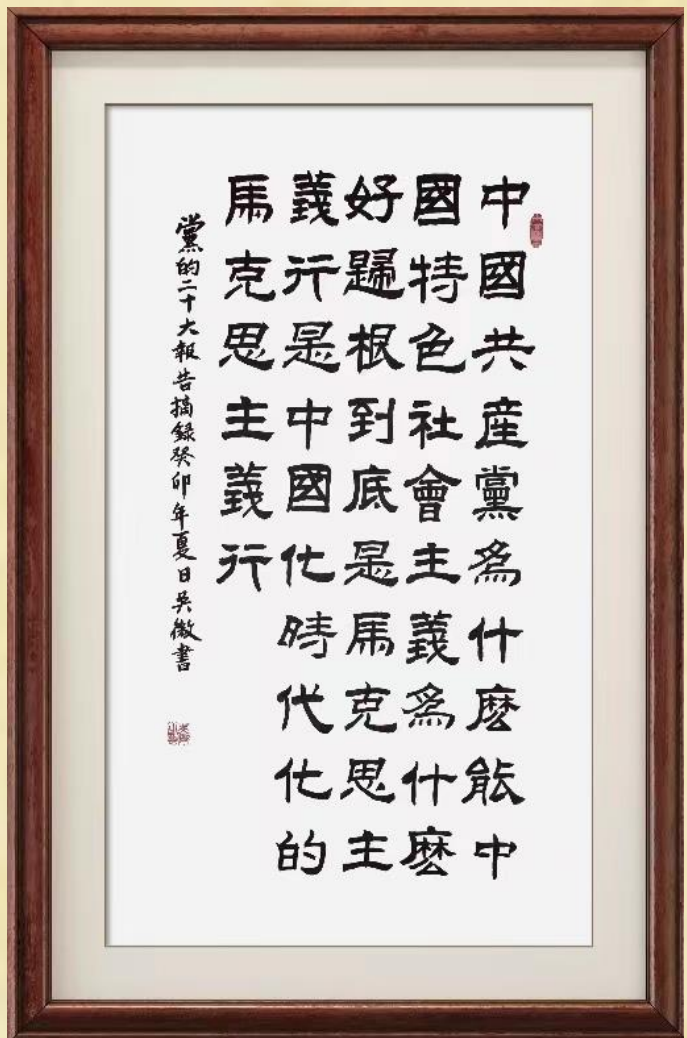 中國共産黨爲什麽能中
國特色社會主義爲什麽
好歸根到底是馬克思主
義行是中國化時代化的
馬克思主義行
黨的二十大報告摘録癸卯年夏日吳徵書